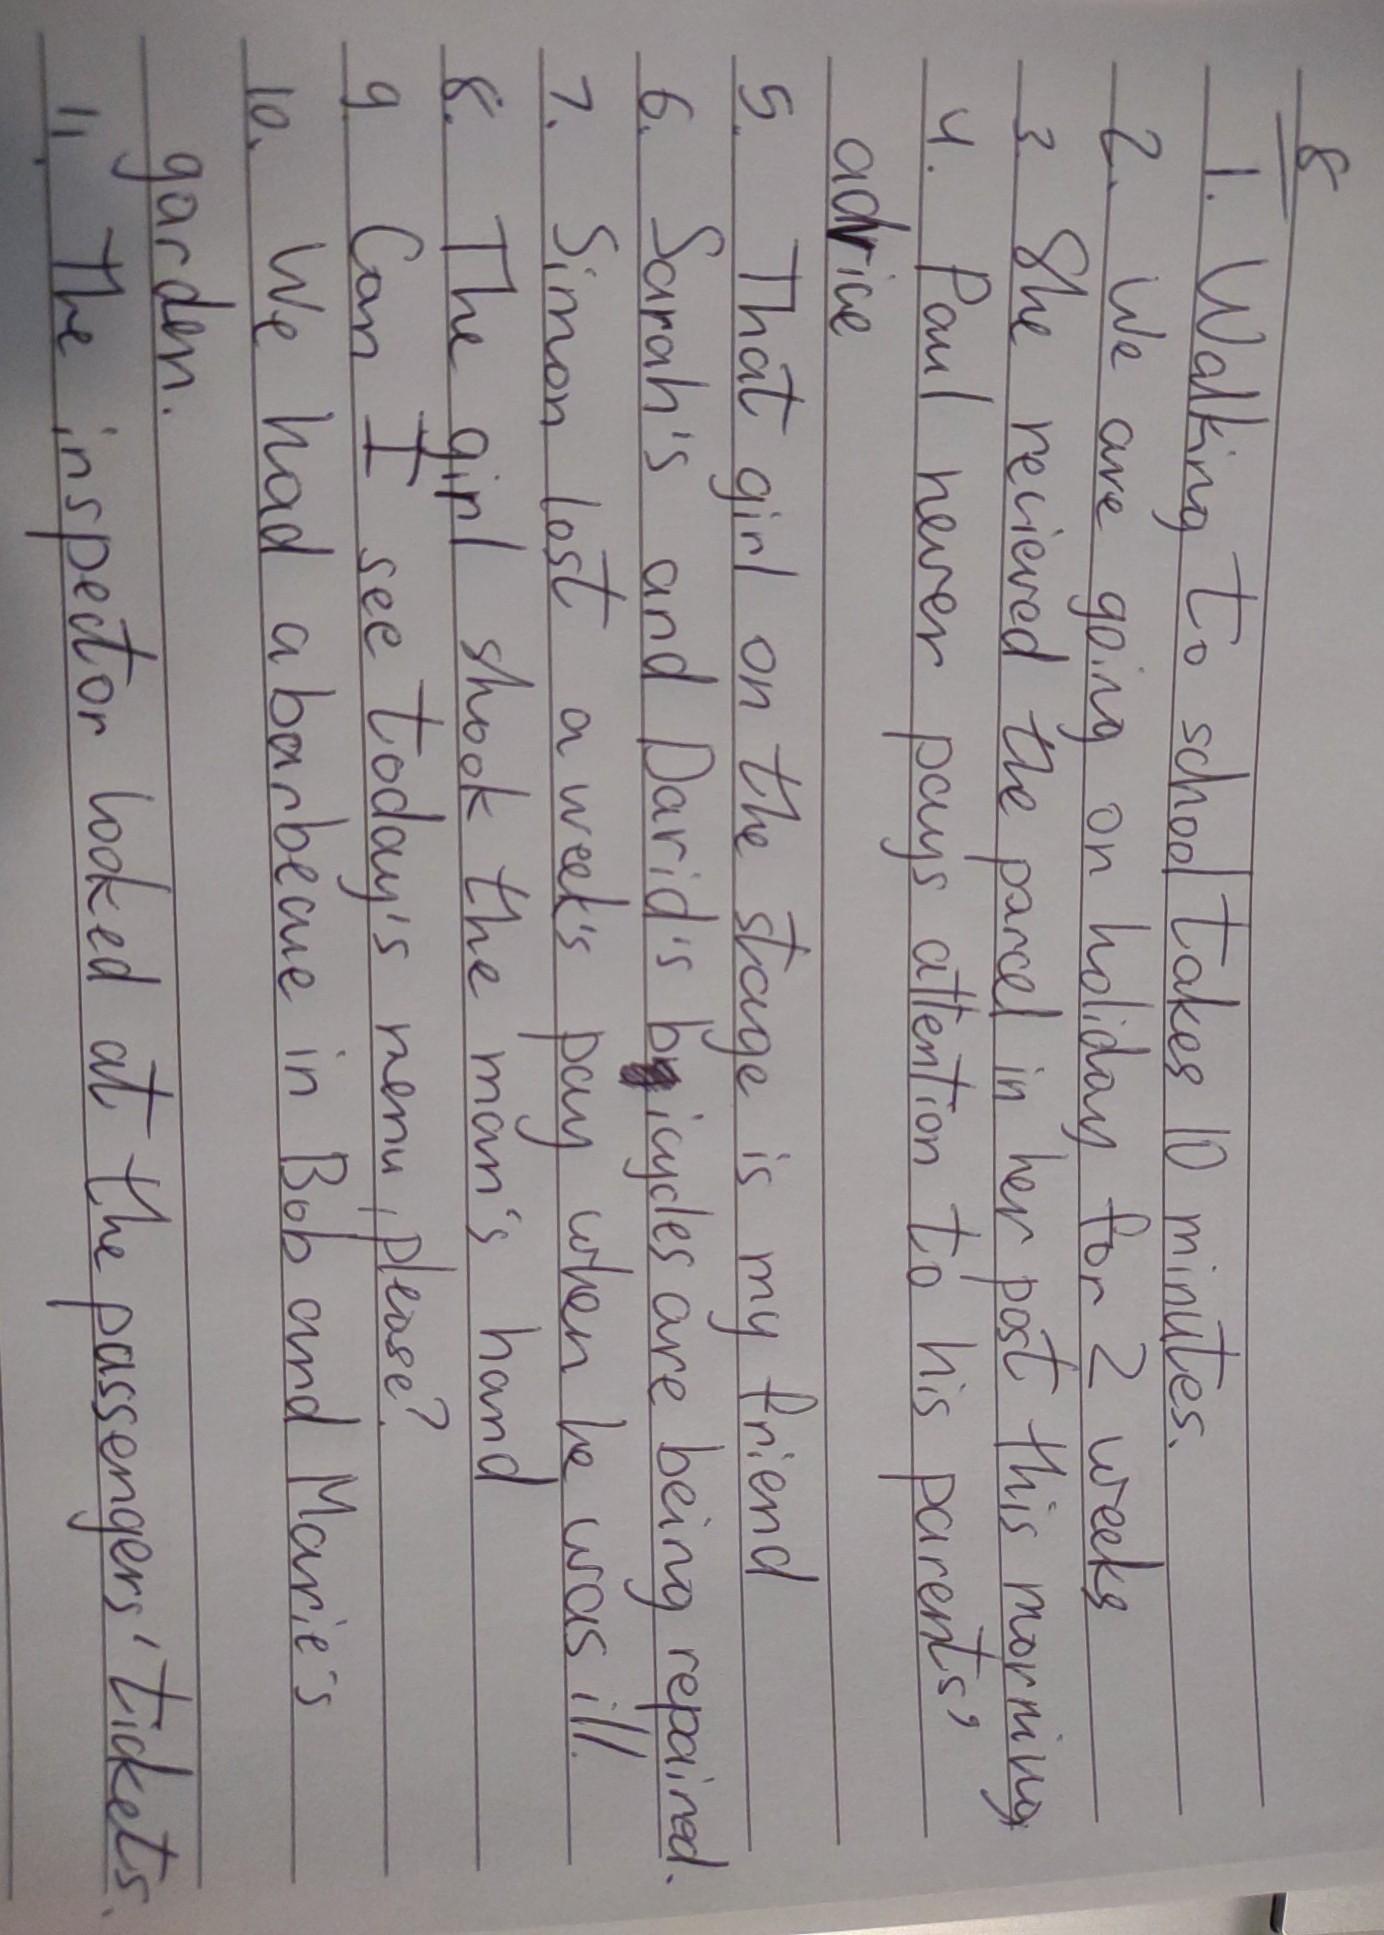 8
1. Walking to school takes 10 minutes.
2. We are going on holiday for 2 weeks
3 She recieved the parcel in her post this morning
4. Paul never pays attention to his parents'
advice
5. That girl on the stage is my friend
6. Sarah's and David's bicycles are being repaired.
7. Simon lost a week's pay when he was ill.
8. The girl shook the man's hand
9 Can I see today's menu, please?
10. We had a barbecue in Bob and Marie's
garden.
11. The inspector looked at the passengers' tickets.